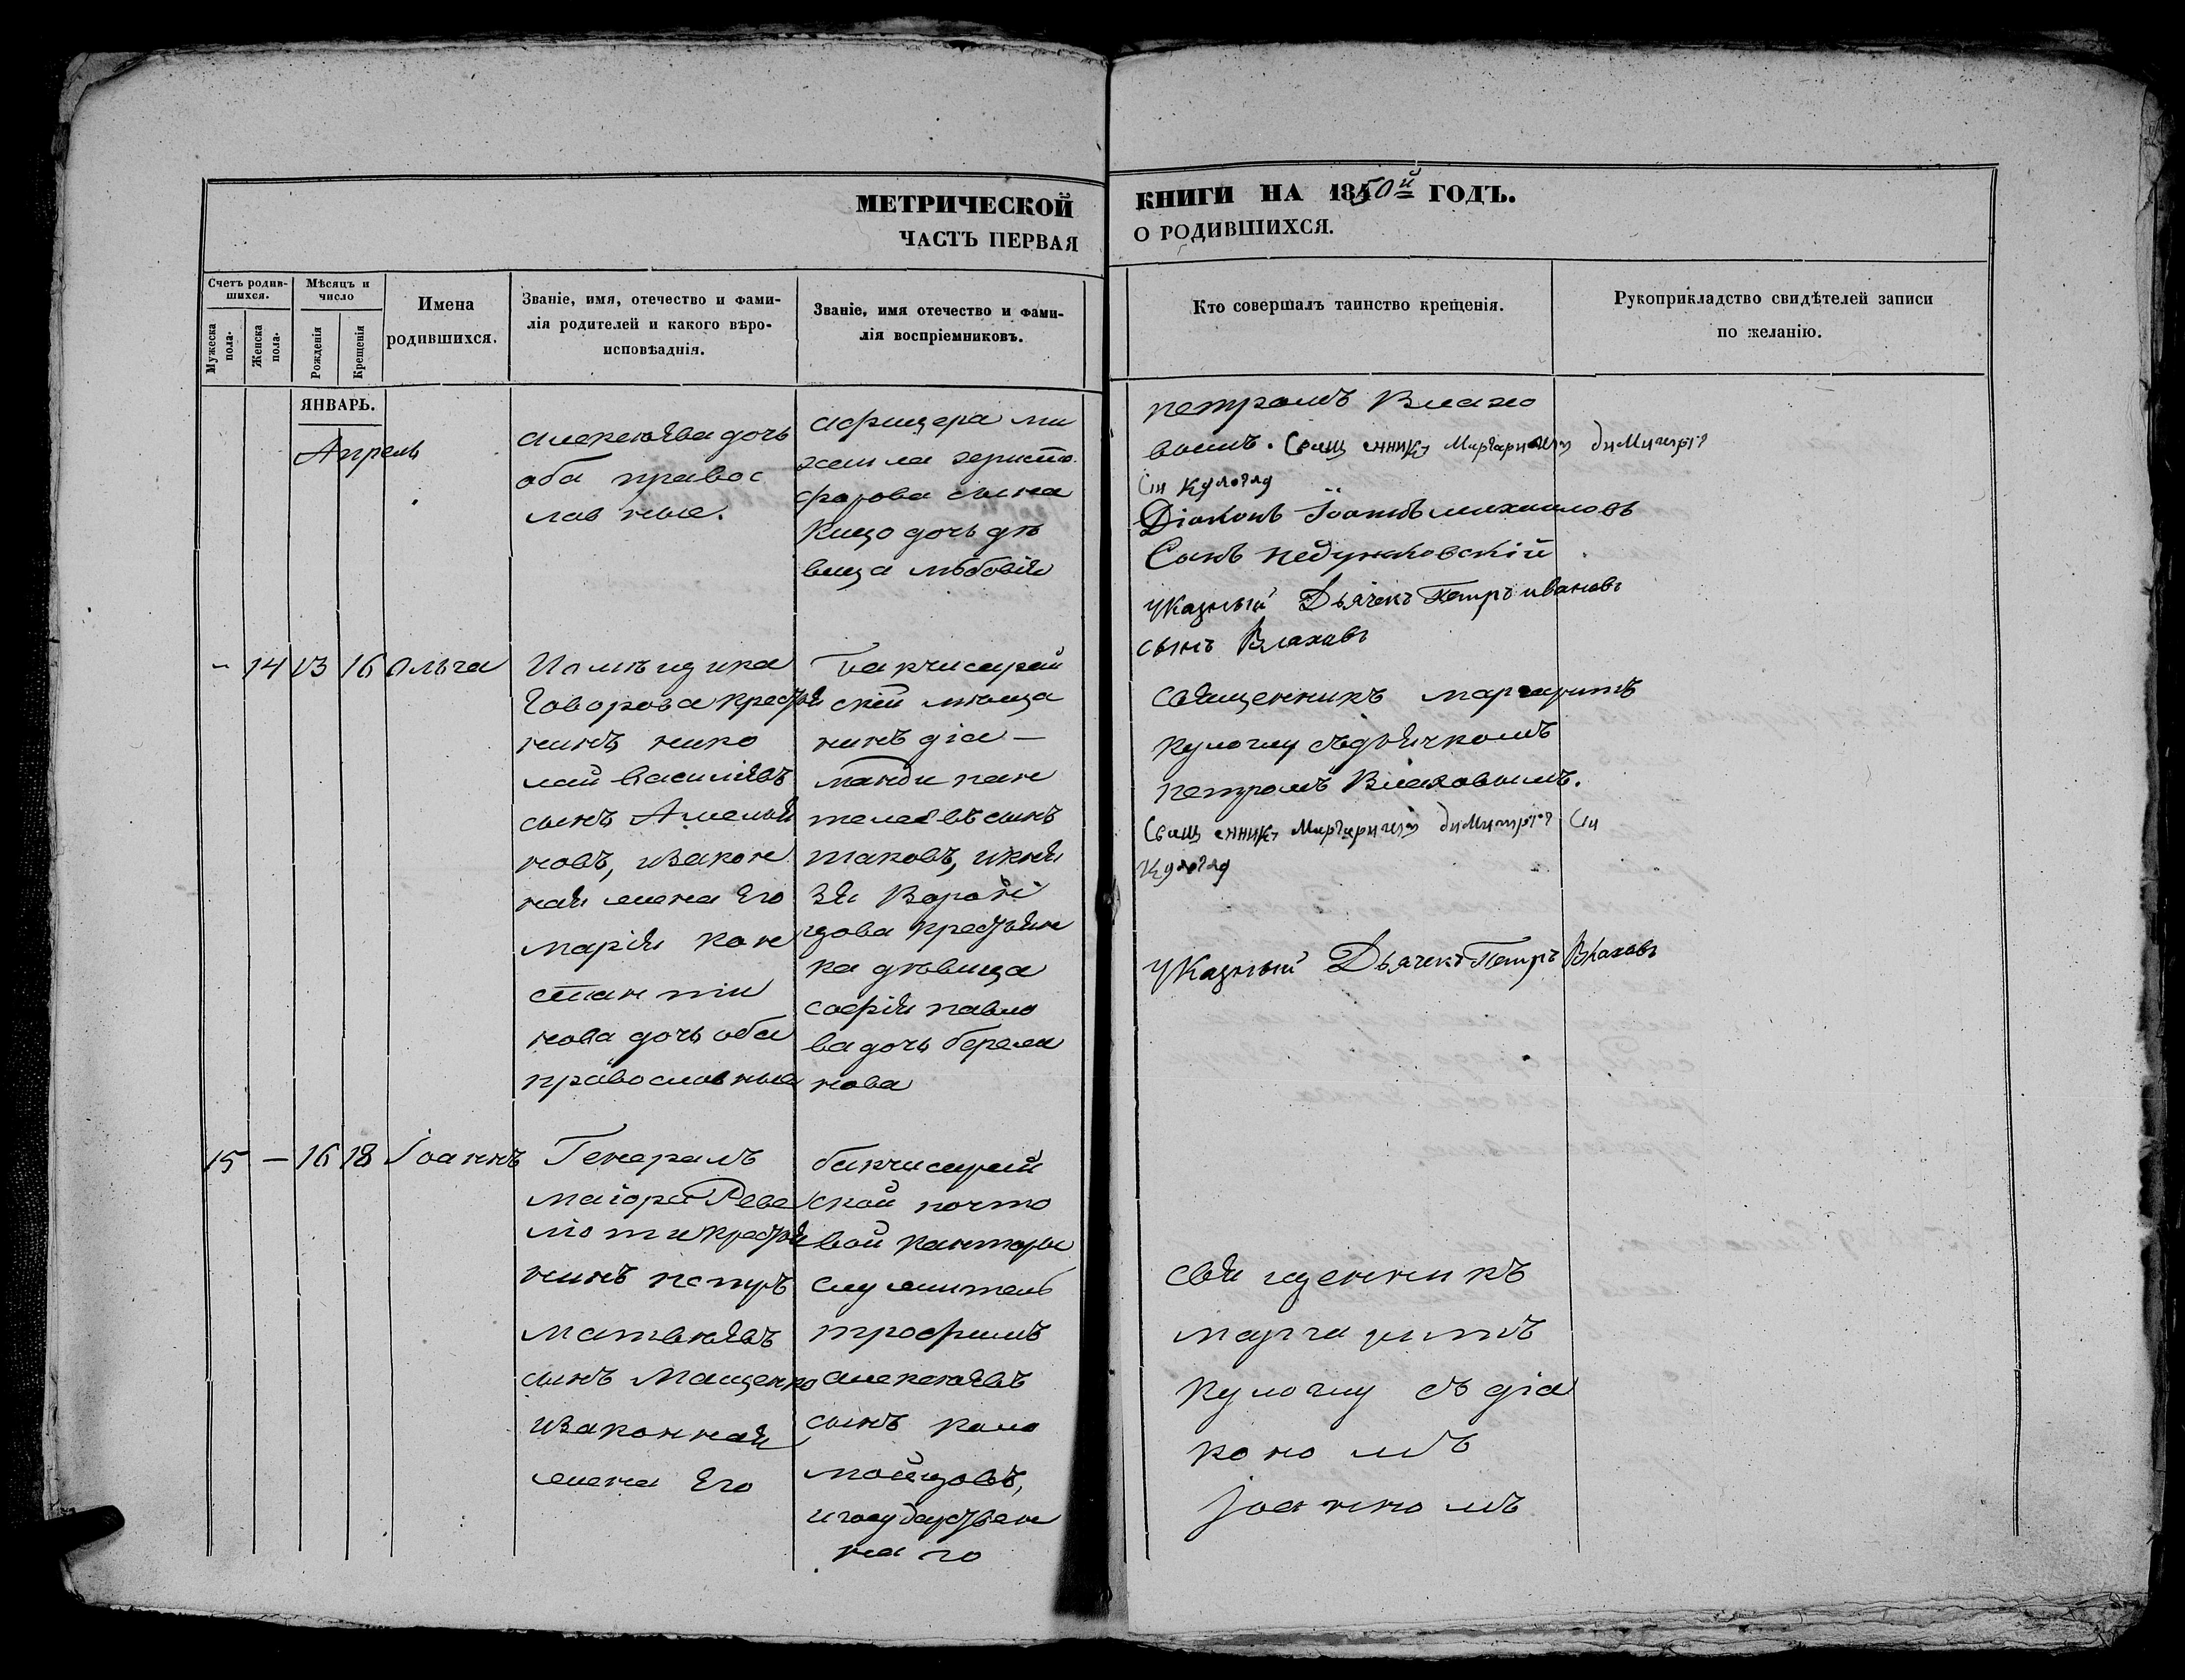 МЕТРИЧЕСКОЙ
ЧАСТЬ ПЕРВАЯ
КНИГИ НА 1850й ГОДЪ.
О РОДИВШИХСЯ.
Счетъ родив-
шихся.
Мужеска
пола.
Женска
пола.
Мѣсяцъ и
число
Рожденія
Крещенія
Имена
родившихся.
Званіе, имя, отечество и фами-
лія родителей и какого вѣро-
исповѣаднія.
Званіе, имя отечество и фами-
лія воспріемниковъ.
Кто совершалъ таинство крещенія.
Рукоприкладство свидѣтелей записи
по желанію.
ЯНВАРЬ.
Апрель
алексѣева дочь
оба правос
лавные.
афицера ми
хаила христо
форова сына
Кицо дочь дѣ
вица любовія
петромъ Влахо
вымъ. Свящ енникъ Маргаритъ димитрі
Кулоглу
Діаконъ Іоаннъ михаиловъ
Сынъ педунковскій
указный Дьячекъ Петръ ивановъ
сынъ Влаховъ
- 14 13 16 Ольга
Помѣщика
Говорова крестья
нинъ нико
лай василіевъ
сынъ Амелья
новъ, изакон
ная жена Его
марія кон
стан тин
нова дочь оба
православные
Бакчисарай
скій мѣща
нинъ діа-
манди пан
телеевъ сынъ
таковъ, икня
зя Ворон
цова крестьян
ка дѣвица
софія павло
ва дочь бережа
нова
священникъ маргаритъ
кулоглу съдьячкомъ
петромъ Влаховымъ.
Свящ енникъ Маргаритъ димитріе
Кулоглу
указный Дьячекъ Петръ Влаховъ
15 - 16 18 Іоаннъ
Генералъ
маіора Реве
ліоти крестья
нинъ петръ
матвѣевъ
сынъ Мащенко
изаконная
жена Его
бакчисарай
ской почто
вой канторы
служитель
трофимъ
алексѣевъ
сынъ коло
мойцовъ,
игосударствен
на го
свя щенникъ
марга ритъ
кулоглу съ діа
коно мъ
Іоанномъ